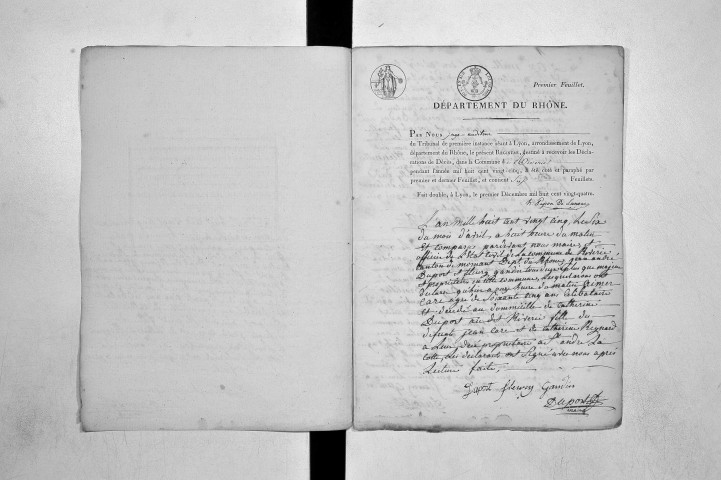 Premier Feuillet.
DÉPARTEMENT DU RHÔNE.
PAR NOUS juge-auditeur
du Tribunal de première instance séant à Lyon, arrondissement de Lyon,
département du Rhône, le présent REGISTRE, destiné à recevoir les Déclara-
tions de Décès, dans la Commune de Riverie
pendant l'année mil huit cent vingt-cinq, a été coté et paraphé par
premier et dernier Feuillet, et contient six Feuillets.
Fait double, à Lyon, le premier Décembre mil huit cent vingt-quatre.
L'an mille huit cent vingt cinq, le six
du mois d'avril, a huit heure du matin
Est comparu pardevant nous maire et
officier de L'Etat civil de La commune de Riverie
canton de mornant Dept du Rhone, jean andré
Duport et fleury gaudin tous deux majeur
et propriétaire en cette commune, Lesquels nous ont
déclaré qu'hier a onze heure du matin
care agé de Soixante cinq ans célibataire
est décédé au domicille de catherine
Duport audit Riverie fille du
défunt jean care et de catherine Reynard
a Leur propriétaire a St andré La
Cotte, Les déclarant ont Signé avec nous après
Lecture faite,
Duport fleury Gaudin
Duport
maire